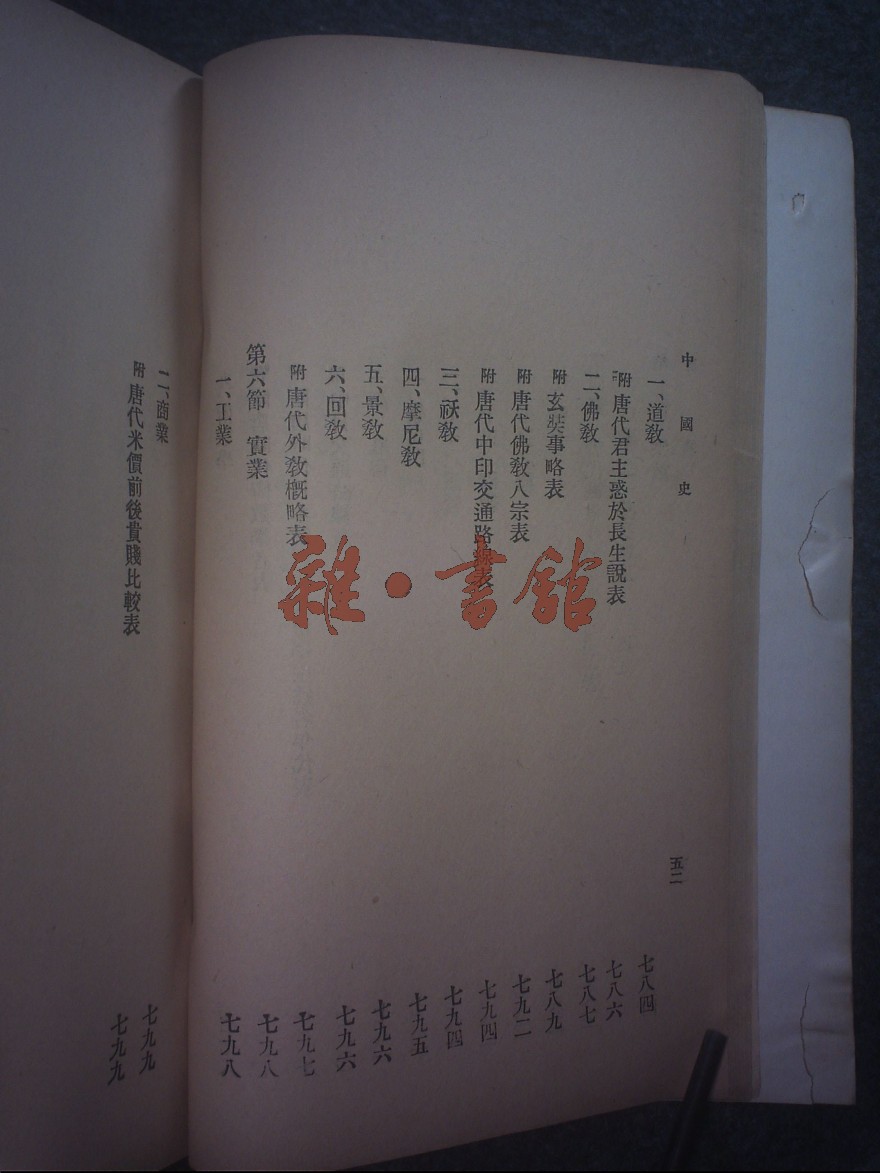 中國史
五二
一、道敎 七八四
附 唐代君主惑於長生說表 七八六
二、佛敎 七八七
附 玄奘事略表 七八九
附 唐代佛敎八宗表 七九二
附 唐代中印交通路線表 七九四
三、祅敎 七九四
四、摩尼敎 七九五
五、景敎 七九六
六、回敎 七九六
附 唐代外敎概略表 七九七
第六節 實業 七九八
一、工業 七九八
二、商業 七九九
附 唐代米價前後貴賤比較表 七九九
雜·書館